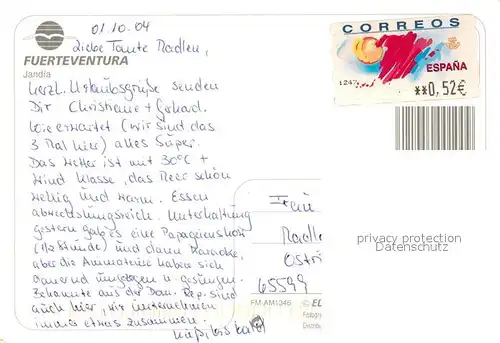 01.10.04
FUERTEVENTURA
Jandía
Liebe Tante Madlen,
herzl. Urlaubsgrüße senden
Dir Christiane + Gerhard.
Wie erwartet (wir sind das
3 Mal hier) alles Super.
Das Wetter ist mit 30°C +
Wind Klasse, das Meer schön
wellig und warm. Essen
abwechslungsreich. Unterhaltung
gestern gab es eine Papageienshow
(1/2 Stunde) und dann Karaoke,
aber die Animateure haben sich
dauernd umgezogen u. gesungen.
Bekannte aus der Dom. Rep. sind
auch hier, wir unternehmen
immer etwas zusammen.
bis bald
CORREOS
ESPAÑA
1247
**0,52€
Frau
Madle
Ostri
65599
privacy protection
Datenschutz
FM-AM1046
© EL
Fotogr
Distrib